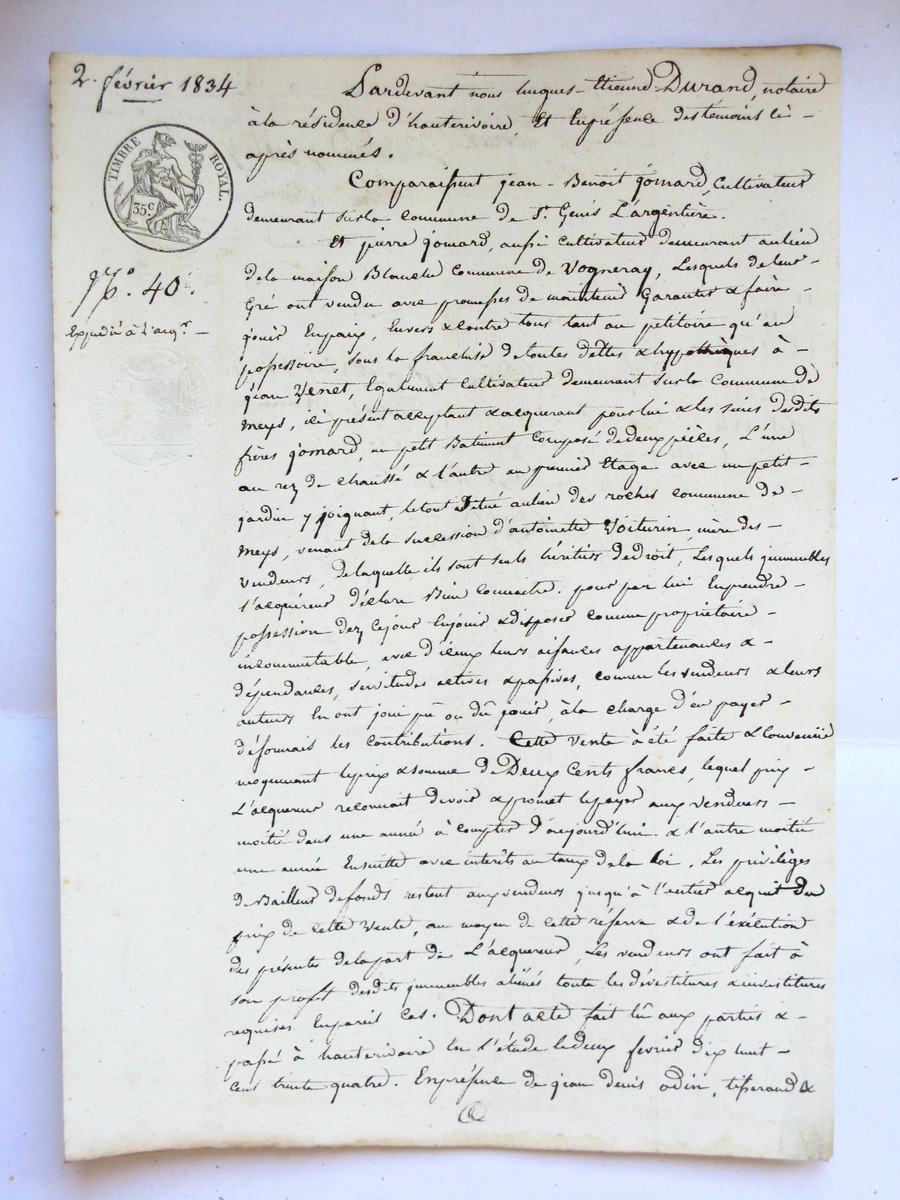 2. février 1834
TIMBRE ROYAL.
35 c
N°. 40.
Expédié à l'acqr. —
Pardevant nous hugues-Etienne Durand, notaire
à la résidence d'hauterivoire, Et En présence des témoins ci-
après nommés.
Comparaissent jean-Benoît jomard, Cultivateur
demeurant sur la commune de St. Genis L'argentière.
Et pierre jomard, aussi Cultivateur demeurant au lieu
de la maison Blanche commune de Vogneray, Lesquels de leur-
Gré ont vendu avec promesses de maintenir Garantir & faire-
jouir En paix, Envers & contre tous tant au pétitoire qu'au
possessoire, sous la franchise de toutes dettes & hypothèques à-
jean Venet, Egalement Cultivateur demeurant sur la Commune de
meys, ici présent acceptant & acquérant pour lui & les siens desdits
frères jomard, un petit Batiment composé de deux pièces, L'une
au rez de chaussé & l'autre au premier Etage avec un petit-
jardin y joignant, le tout situé au lieu des roches commune de-
meys, venant de la succession d'antoinette Voiturin, mère des-
vendeurs, de laquelle ils sont seuls héritiers de droit, Lesquels immeubles
l'acquéreur déclare Bien Connaitre. pour par lui En prendre-
possession dez ce jour En jouir & disposer comme propriétaire-
incommutable, avec d'iceux leurs aisances appartenances &-
dépendances, servitudes actives & passives, comme les vendeurs & leurs
auteurs En ont joui pû ou dû jouir, à la charge d'en payer-
désormais les contributions. Cette vente à été faite & Convenüe
moyennant le prix & somme de Deux Cents francs, lequel prix-
L'acquereur reconnait devoir & promet le payer aux vendeurs-
moitié dans une année à compter d'aujourd'hui & l'autre moitié
une année Ensuitte avec interêts au taux de la Loi. Les privilèges
de Bailleur de fonds restent aux vendeurs jusqu'à l'entier acquit du
prix de cette Vente, au moyen de cette réserve & de l'exécution
des présentes de la part de L'acquereur, Les vendeurs ont fait à
son profit desdits immeubles aliénés toute les dévestitures & investitures
requises En pareil Cas. Dont acte fait lû aux parties &-
passé à hauterivoire En l'étude le deux fevrier dix huit-
cent trente quatre. En présence de jean denis odin, tisserand &